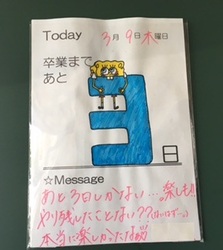 Today 3月9日木曜日
卒業まで
あと
3
日
☆Message
あと3日しかない…。楽しも!!
やり残したことない??
本当に楽しかったな